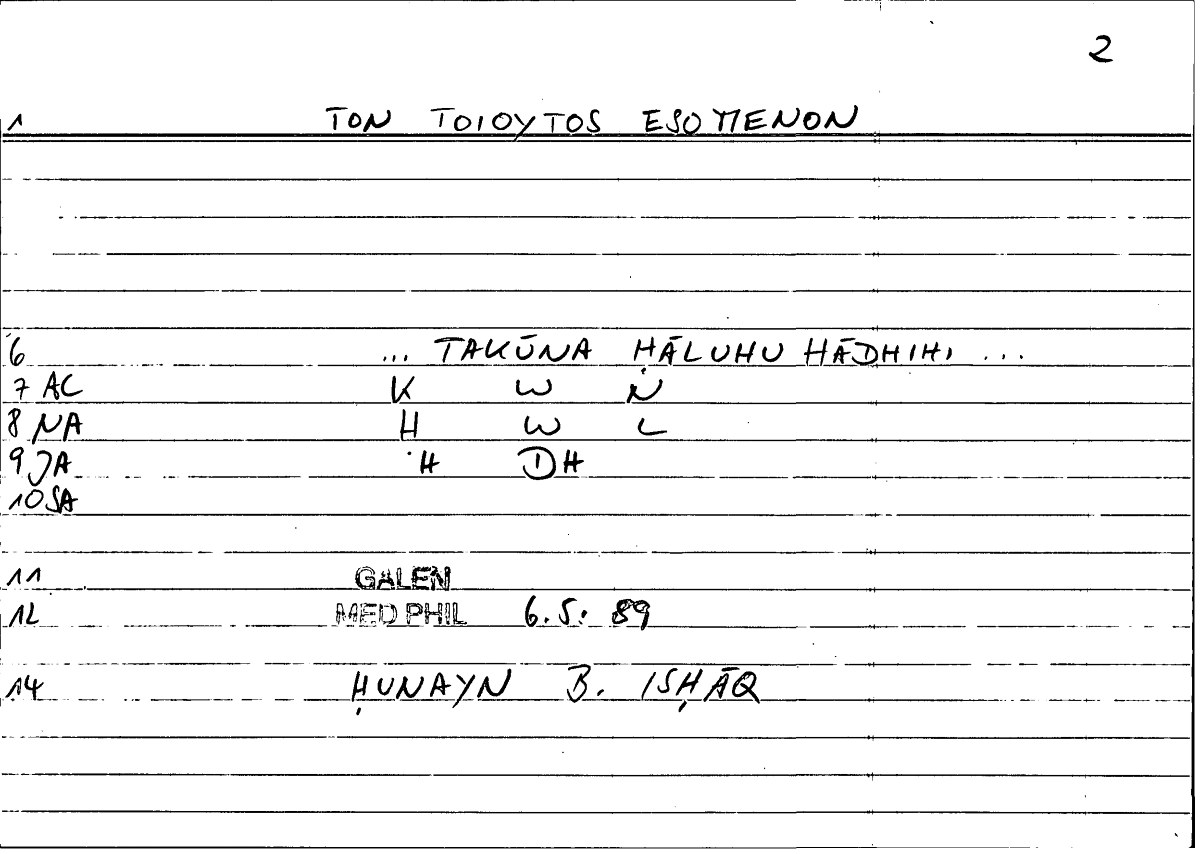 2
1 TON TOIOYTOS ESOMENON
6 ... TAKŪNA ḤĀLUHU HĀDHIHI ...
7 AC K W N
8 NA Ḥ W L
9 JA H DH
10 SA
11 GALEN
12 MED PHIL 6.5: 89
14 ḤUNAYN B. ISḤĀQ